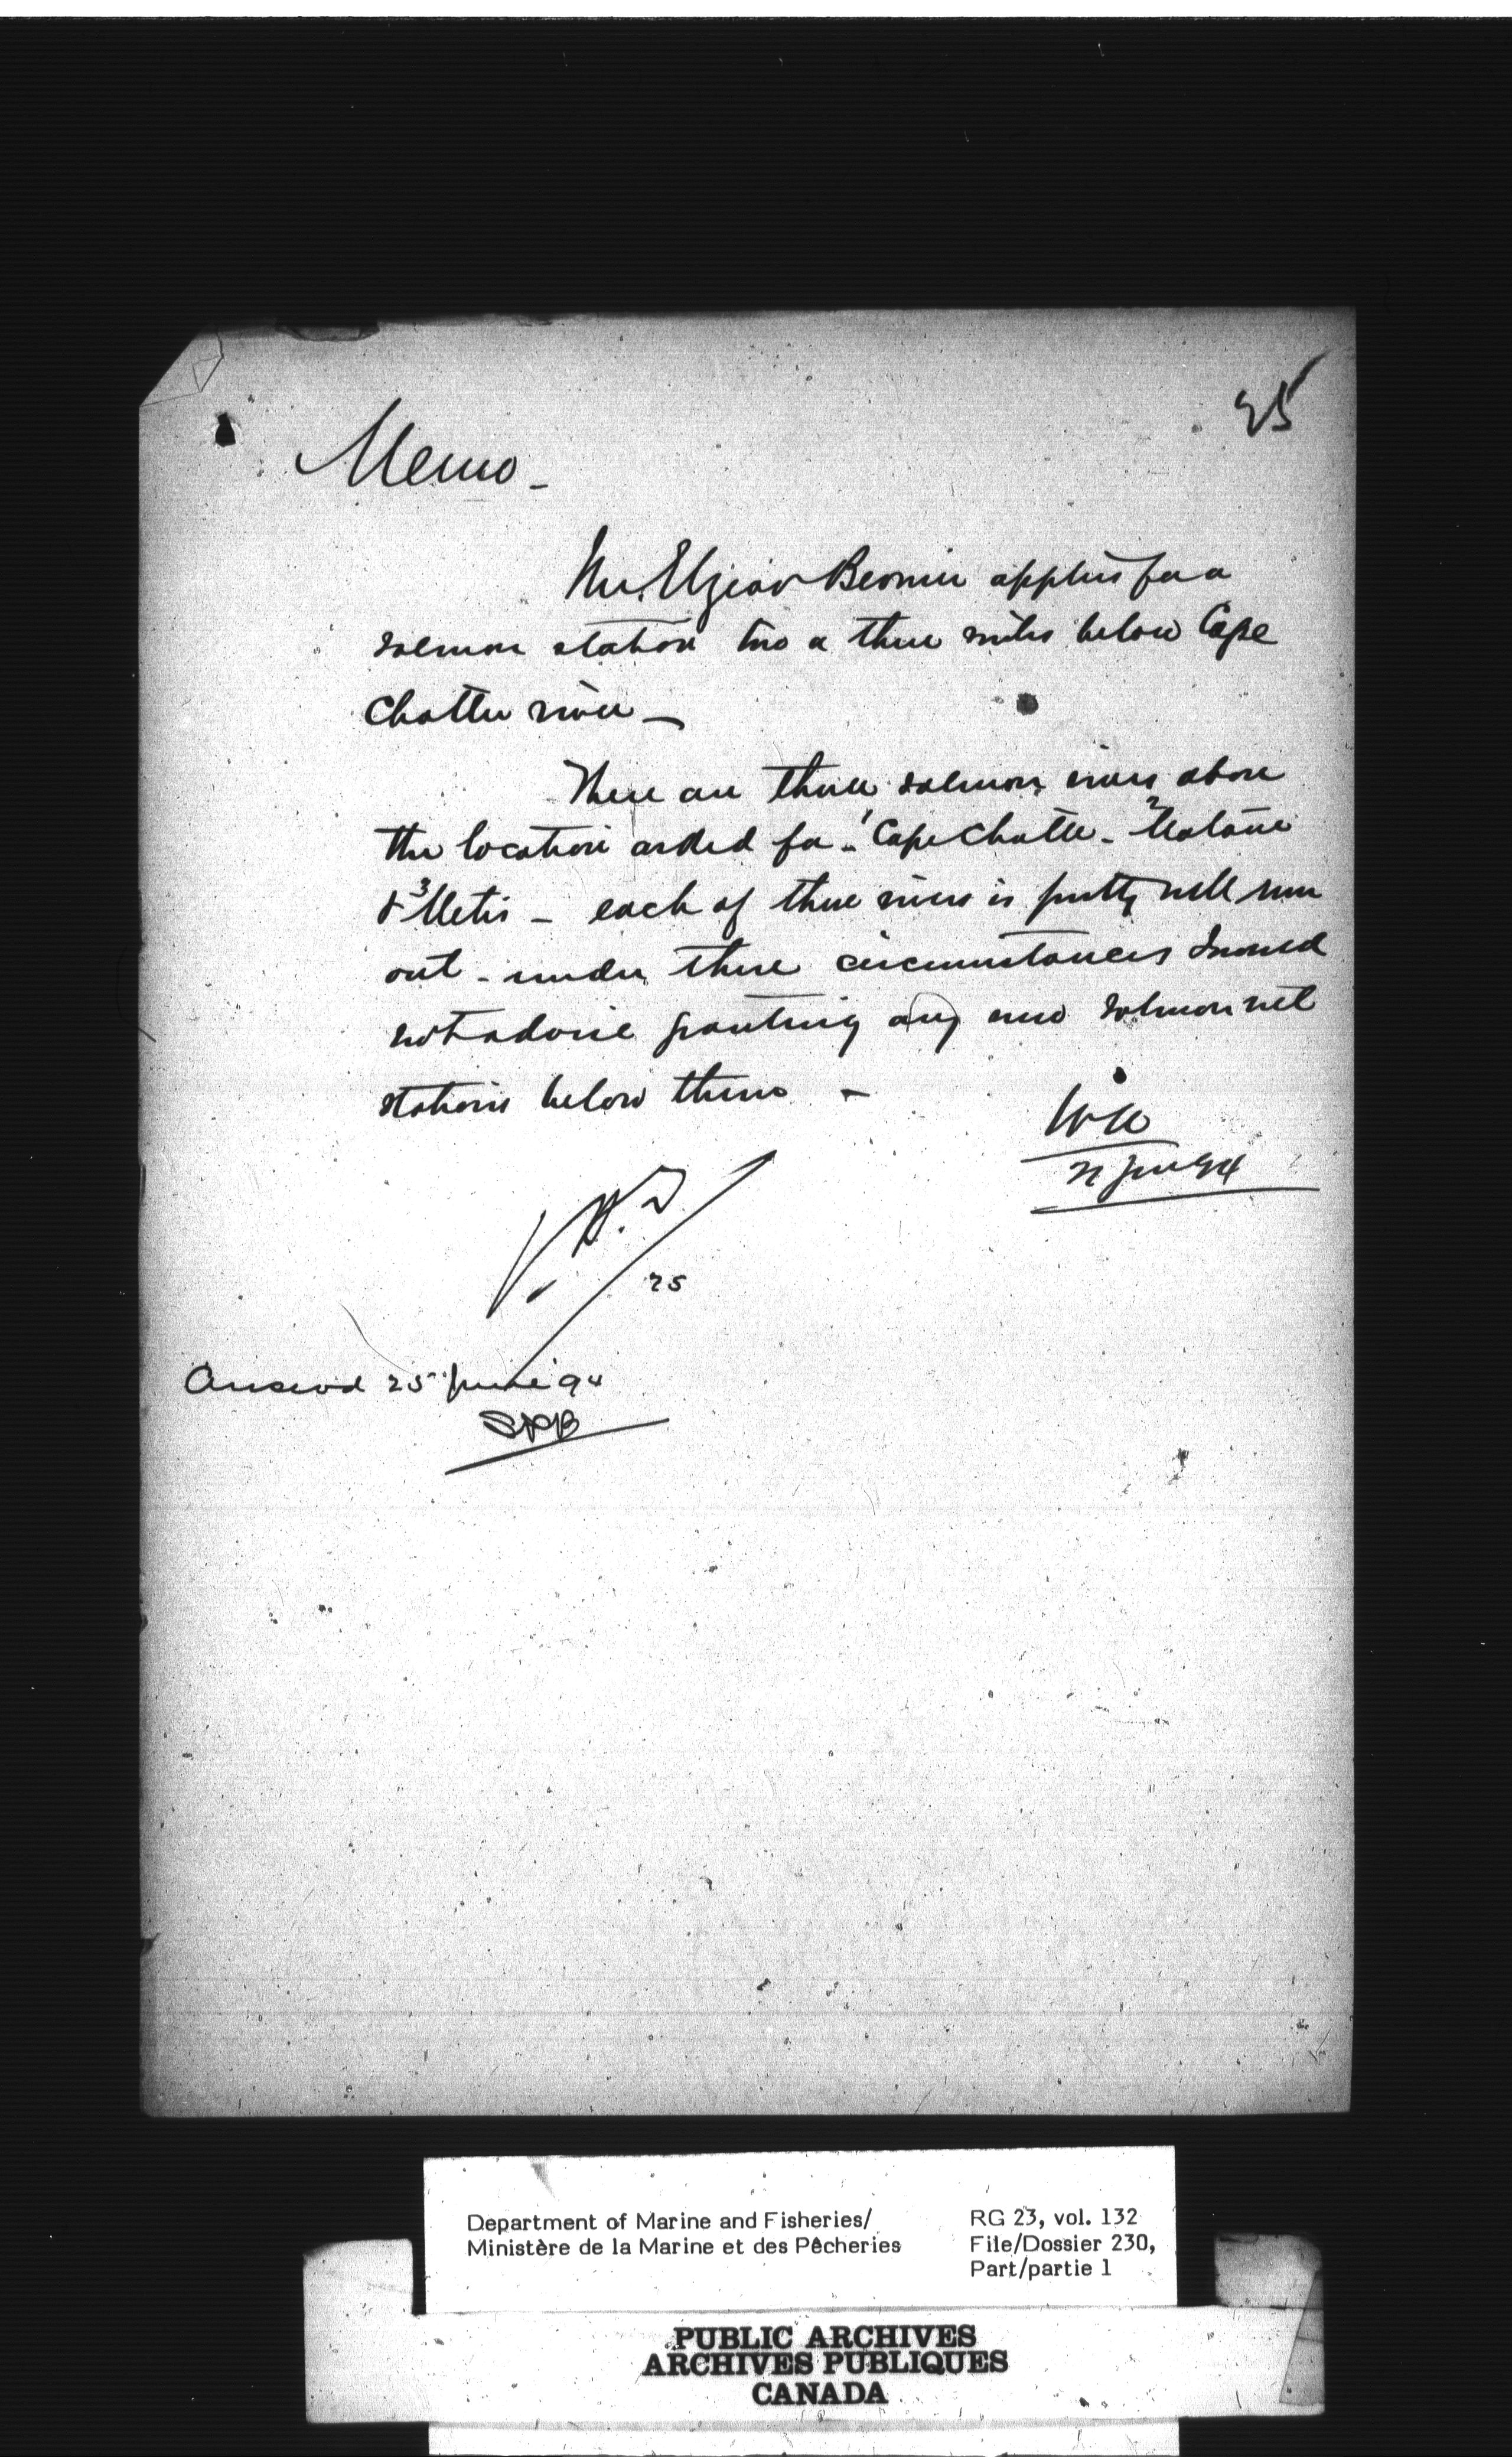 25
Memo -
Mr. Elzear Bernier applies for a
salmon station two or three miles below Cape
Chatte river -
There are three salmon rivers above
the location asked for - 1 Cape Chatte - 2 Matane
& 3 Metis - each of these rivers is pretty well run
out - under these circumstances I would
not advise granting any new salmon net
stations below them -
21 June 94
25
Answered 25 June 94
SPB
Department of Marine and Fisheries/
Ministère de la Marine et des Pêcheries
RG 23, vol. 132
File/Dossier 230,
Part/partie 1
PUBLIC ARCHIVES
ARCHIVES PUBLIQUES
CANADA